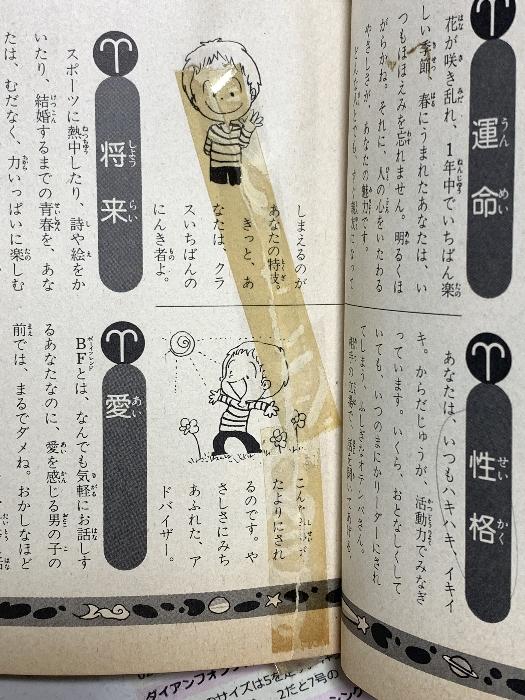 運命
花が咲き乱れ、1年中でいちばん楽
しい季節、春にうまれたあなたは、い
つもほほえみを忘れません。明るくほ
がらかね。それに、人の心をいたわる
やさしさが、あなたの魅力です。
しまえるのが
あなたの特技。
きっと、あ
なたは、クラ
スいちばんの
にんき者よ。
将来
スポーツに熱中したり、詩や絵をか
いたり、結婚するまでの青春を、あな
たは、むだなく、力いっぱいに楽しむ
性格
あなたは、いつもハキハキ、イキイ
キ。からだじゅうが、活動力でみなぎ
っています。いくら、おとなしくして
いても、いつのまにかリーダーにされ
てしまう、ふしぎなオテンバさん。
たよりにされ
るのです。や
さしさにみち
あふれた、ア
ドバイザー。
愛
BFとは、なんでも気軽にお話しす
るあなたなのに、愛を感じる男の子の
前では、まるでダメね。おかしなほど
ダイアンフォ
のサイズは5を
2だと7号の